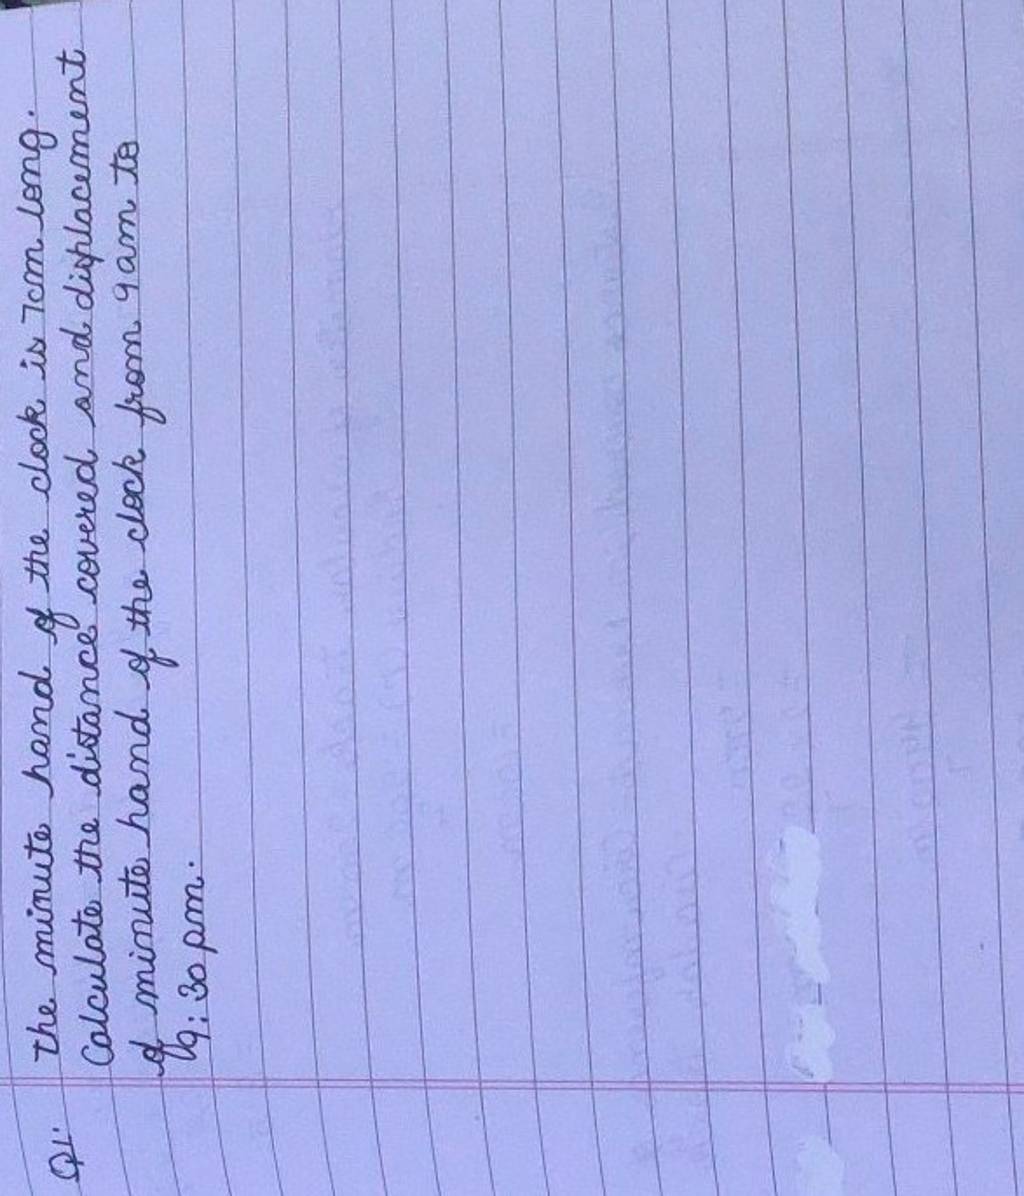 Q1. The minute hand of the clock is 7cm long.
Calculate the distance covered and displacement
of minute hand of the clock from 9 am to
9:30 pm.